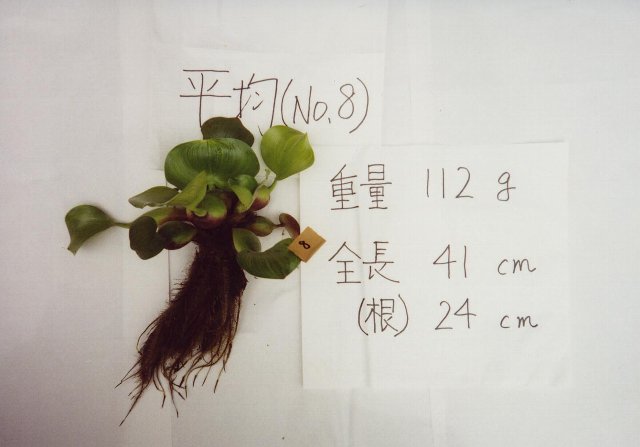 平均(No.8)
重量 112 g
全長 41 cm
(根) 24 cm
8